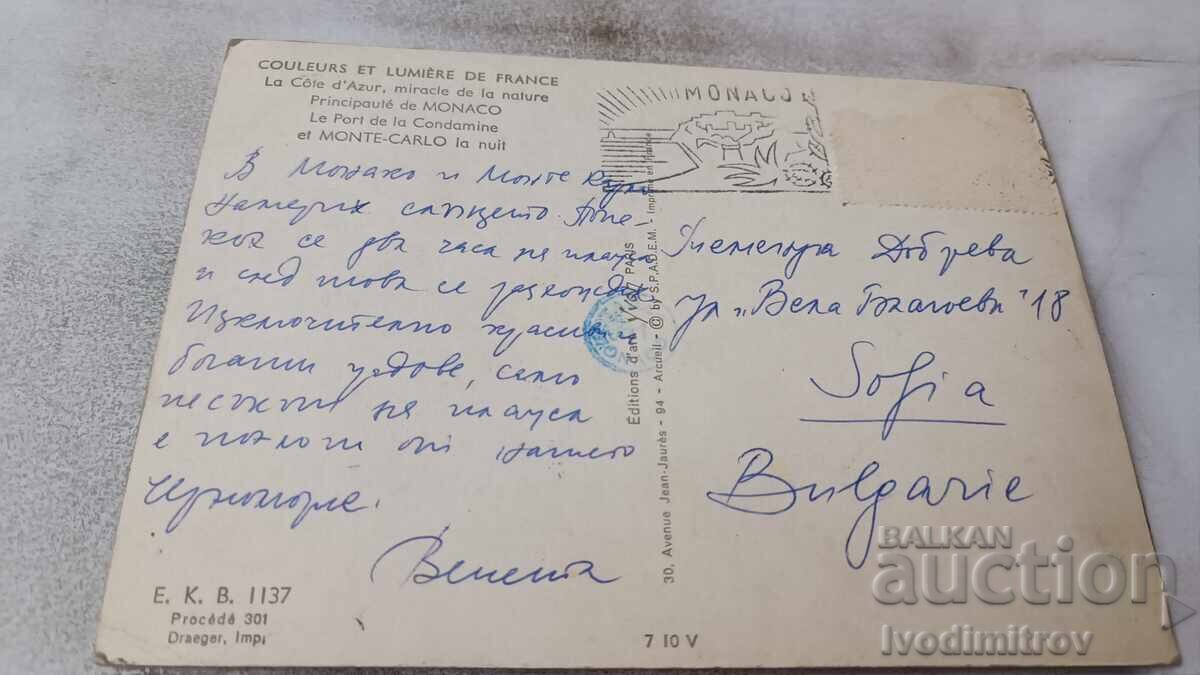 COULEURS ET LUMIÈRE DE FRANCE
La Côte d'Azur, miracle de la nature
Principauté de MONACO
Le Port de la Condamine
et MONTE-CARLO la nuit
В Монако и Монте Карло
намерих слънцето. Попе-
кох се два часа на плажа
и след това се разходих
Изключително красиви и
богати градове, само
пясъкът на плажа
е по-лош от нашето
Черноморие.
Венета
E. K. B. 1137
Procédé 301
Draeger, Impr
Éditions d'art YVON, PARIS
30, Avenue Jean-Jaurès - 94 - Arcueil - © by S.P.A.D.E.M. - Imprimé en France
7 10 V
MONACO
Теменуга Добрева
ул "Вела Благоева" 18
Sofia
Bulgarie
BALKAN
auction
Ivodimitrov